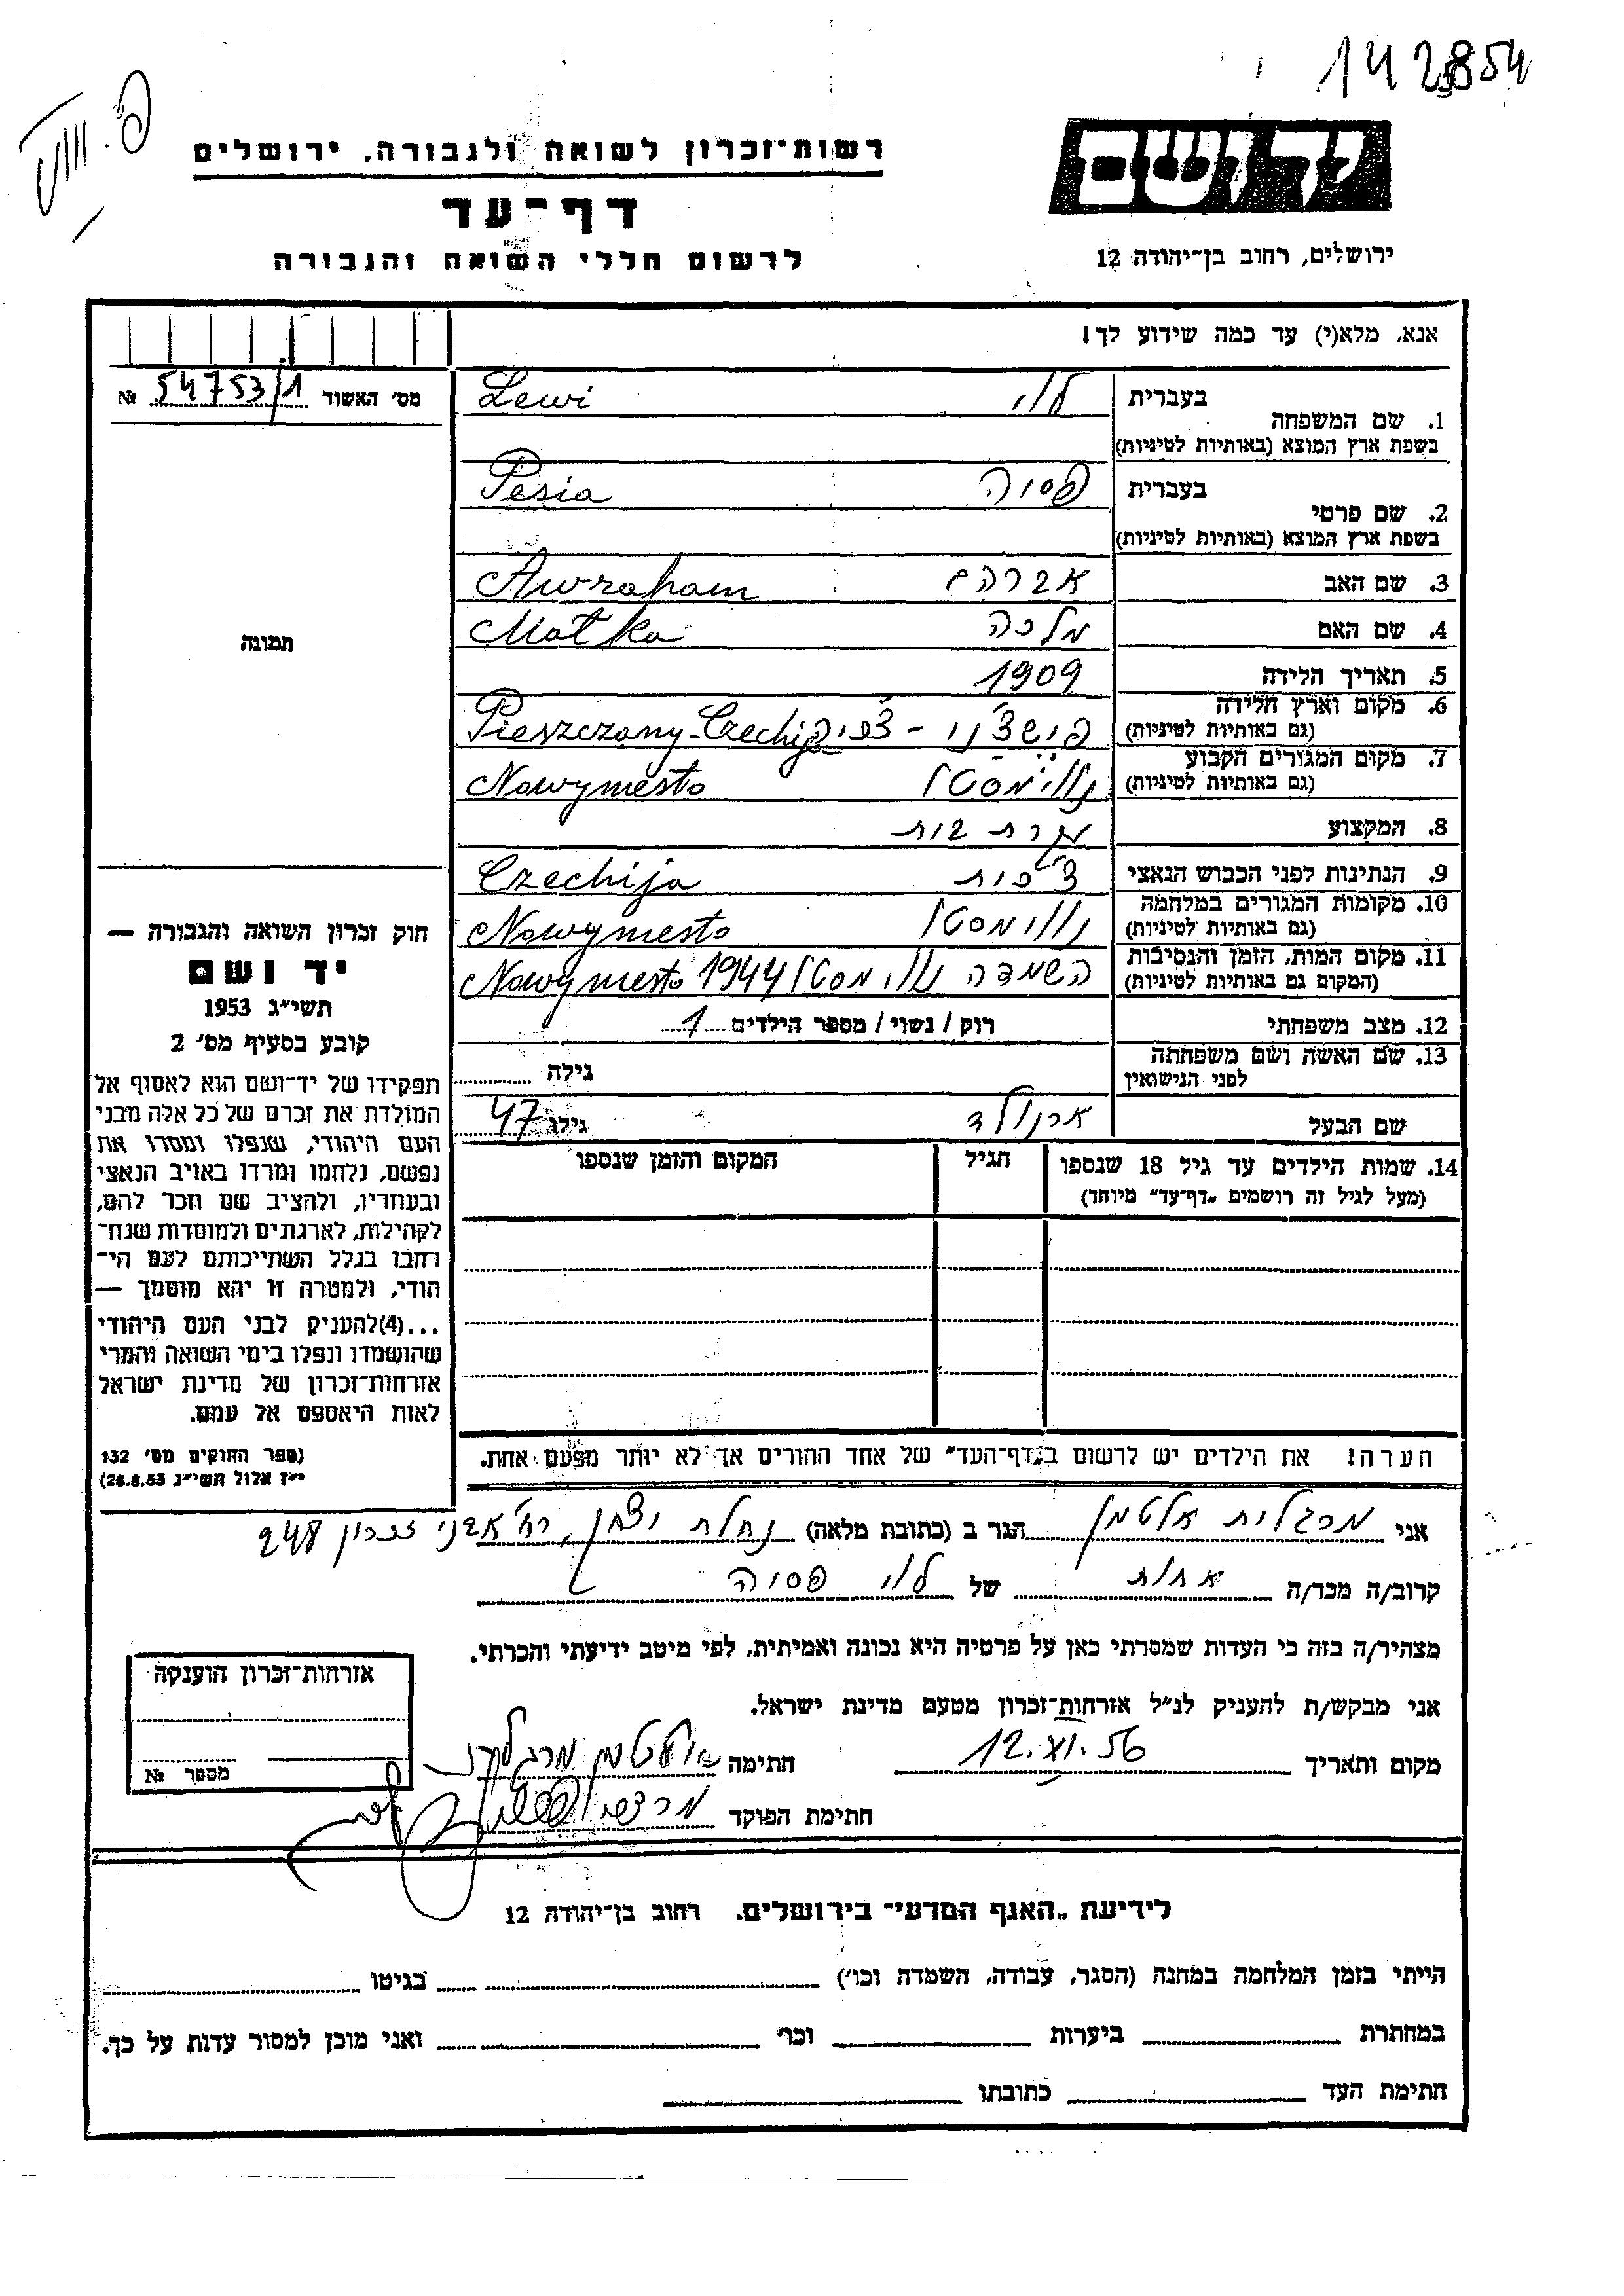 142854
יד ושם
רשות־זכרון לשואה ולגבורה, ירושלים
דף־עד
לרשום חללי השואה והגבורה
ירושלים, רחוב בן־יהודה 12
אנא, מלא(י) עד כמה שידוע לך!
מס׳ האשור 54753/1 №
תמונה
1. שם המשפחה
בעברית לוי Lewi
בשפת ארץ המוצא (באותיות לטיניות)
2. שם פרטי
בעברית פסיה Pesia
בשפת ארץ המוצא (באותיות לטיניות)
3. שם האב אברהם Awraham
4. שם האם מלכה Malka
5. תאריך הלידה 1909
6. מקום וארץ הלידה פישצ׳ני - צ׳כיה Pieszczany-Czechija
(גם באותיות לטיניות)
7. מקום המגורים הקבוע נווימסטו Nowymesto
(גם באותיות לטיניות)
8. המקצוע עקרת בית
9. הנתינות לפני הכבוש הנאצי צ׳כית Czechija
10. מקומות המגורים במלחמה נווימסטו Nowymesto
(גם באותיות לטיניות)
11. מקום המות, הזמן והנסיבות השמדה נווימסטו 1944 Nowymesto
(המקום גם באותיות לטיניות)
12. מצב משפחתי רוק / נשוי / מספר הילדים 1
13. שם האשה ושם משפחתה גילה
לפני הנישואין
שם הבעל ארנולד גילו 47
14. שמות הילדים עד גיל 18 שנספו הגיל המקום והזמן שנספו
(מעל לגיל זה רושמים „דף־עד״ מיוחד)
הערה! את הילדים יש לרשום ב„דף־העד״ של אחד ההורים אך לא יותר מפעם אחת.
חוק זכרון השואה והגבורה —
יד ושם
תשי״ג 1953
קובע בסעיף מס׳ 2
תפקידו של יד־ושם הוא לאסוף אל
המולדת את זכרם של כל אלה מבני
העם היהודי, שנפלו ומסרו את
נפשם, נלחמו ומרדו באויב הנאצי
ובעוזריו, ולהציב שם וזכר להם,
לקהילות, לארגונים ולמוסדות שנח־
רבו בגלל השתייכותם לעם הי־
הודי, ולמטרה זו יהא מוסמך —
...(4)להעניק לבני העם היהודי
שהושמדו ונפלו בימי השואה והמרי
אזרחות־זכרון של מדינת ישראל
לאות היאספם אל עמם.
(ספר החוקים מס׳ 132
י״ז אלול תשי״ג 28.8.53)
אני מרגלית אלטמן הגר ב (כתובת מלאה) נחלת יצחק, רח׳ אבני זכרון 248
קרוב/ה מכר/ה אחות של לוי פסיה
מצהיר/ה בזה כי העדות שמסרתי כאן על פרטיה היא נכונה ואמיתית, לפי מיטב ידיעתי והכרתי.
אני מבקש/ת להעניק לנ״ל אזרחות־זכרון מטעם מדינת ישראל.
מקום ותאריך 12.XI.56 חתימה אלטמן מרגלית
חתימת הפוקד
אזרחות־זכרון הוענקה
מספר №
לידיעת „האגף המדעי״ בירושלים, רחוב בן־יהודה 12
הייתי בזמן המלחמה במחנה (הסגר, עבודה, השמדה וכו׳) בגיטו
במחתרת ביערות וכו׳ ואני מוכן למסור עדות על כך.
חתימת העד כתובתו